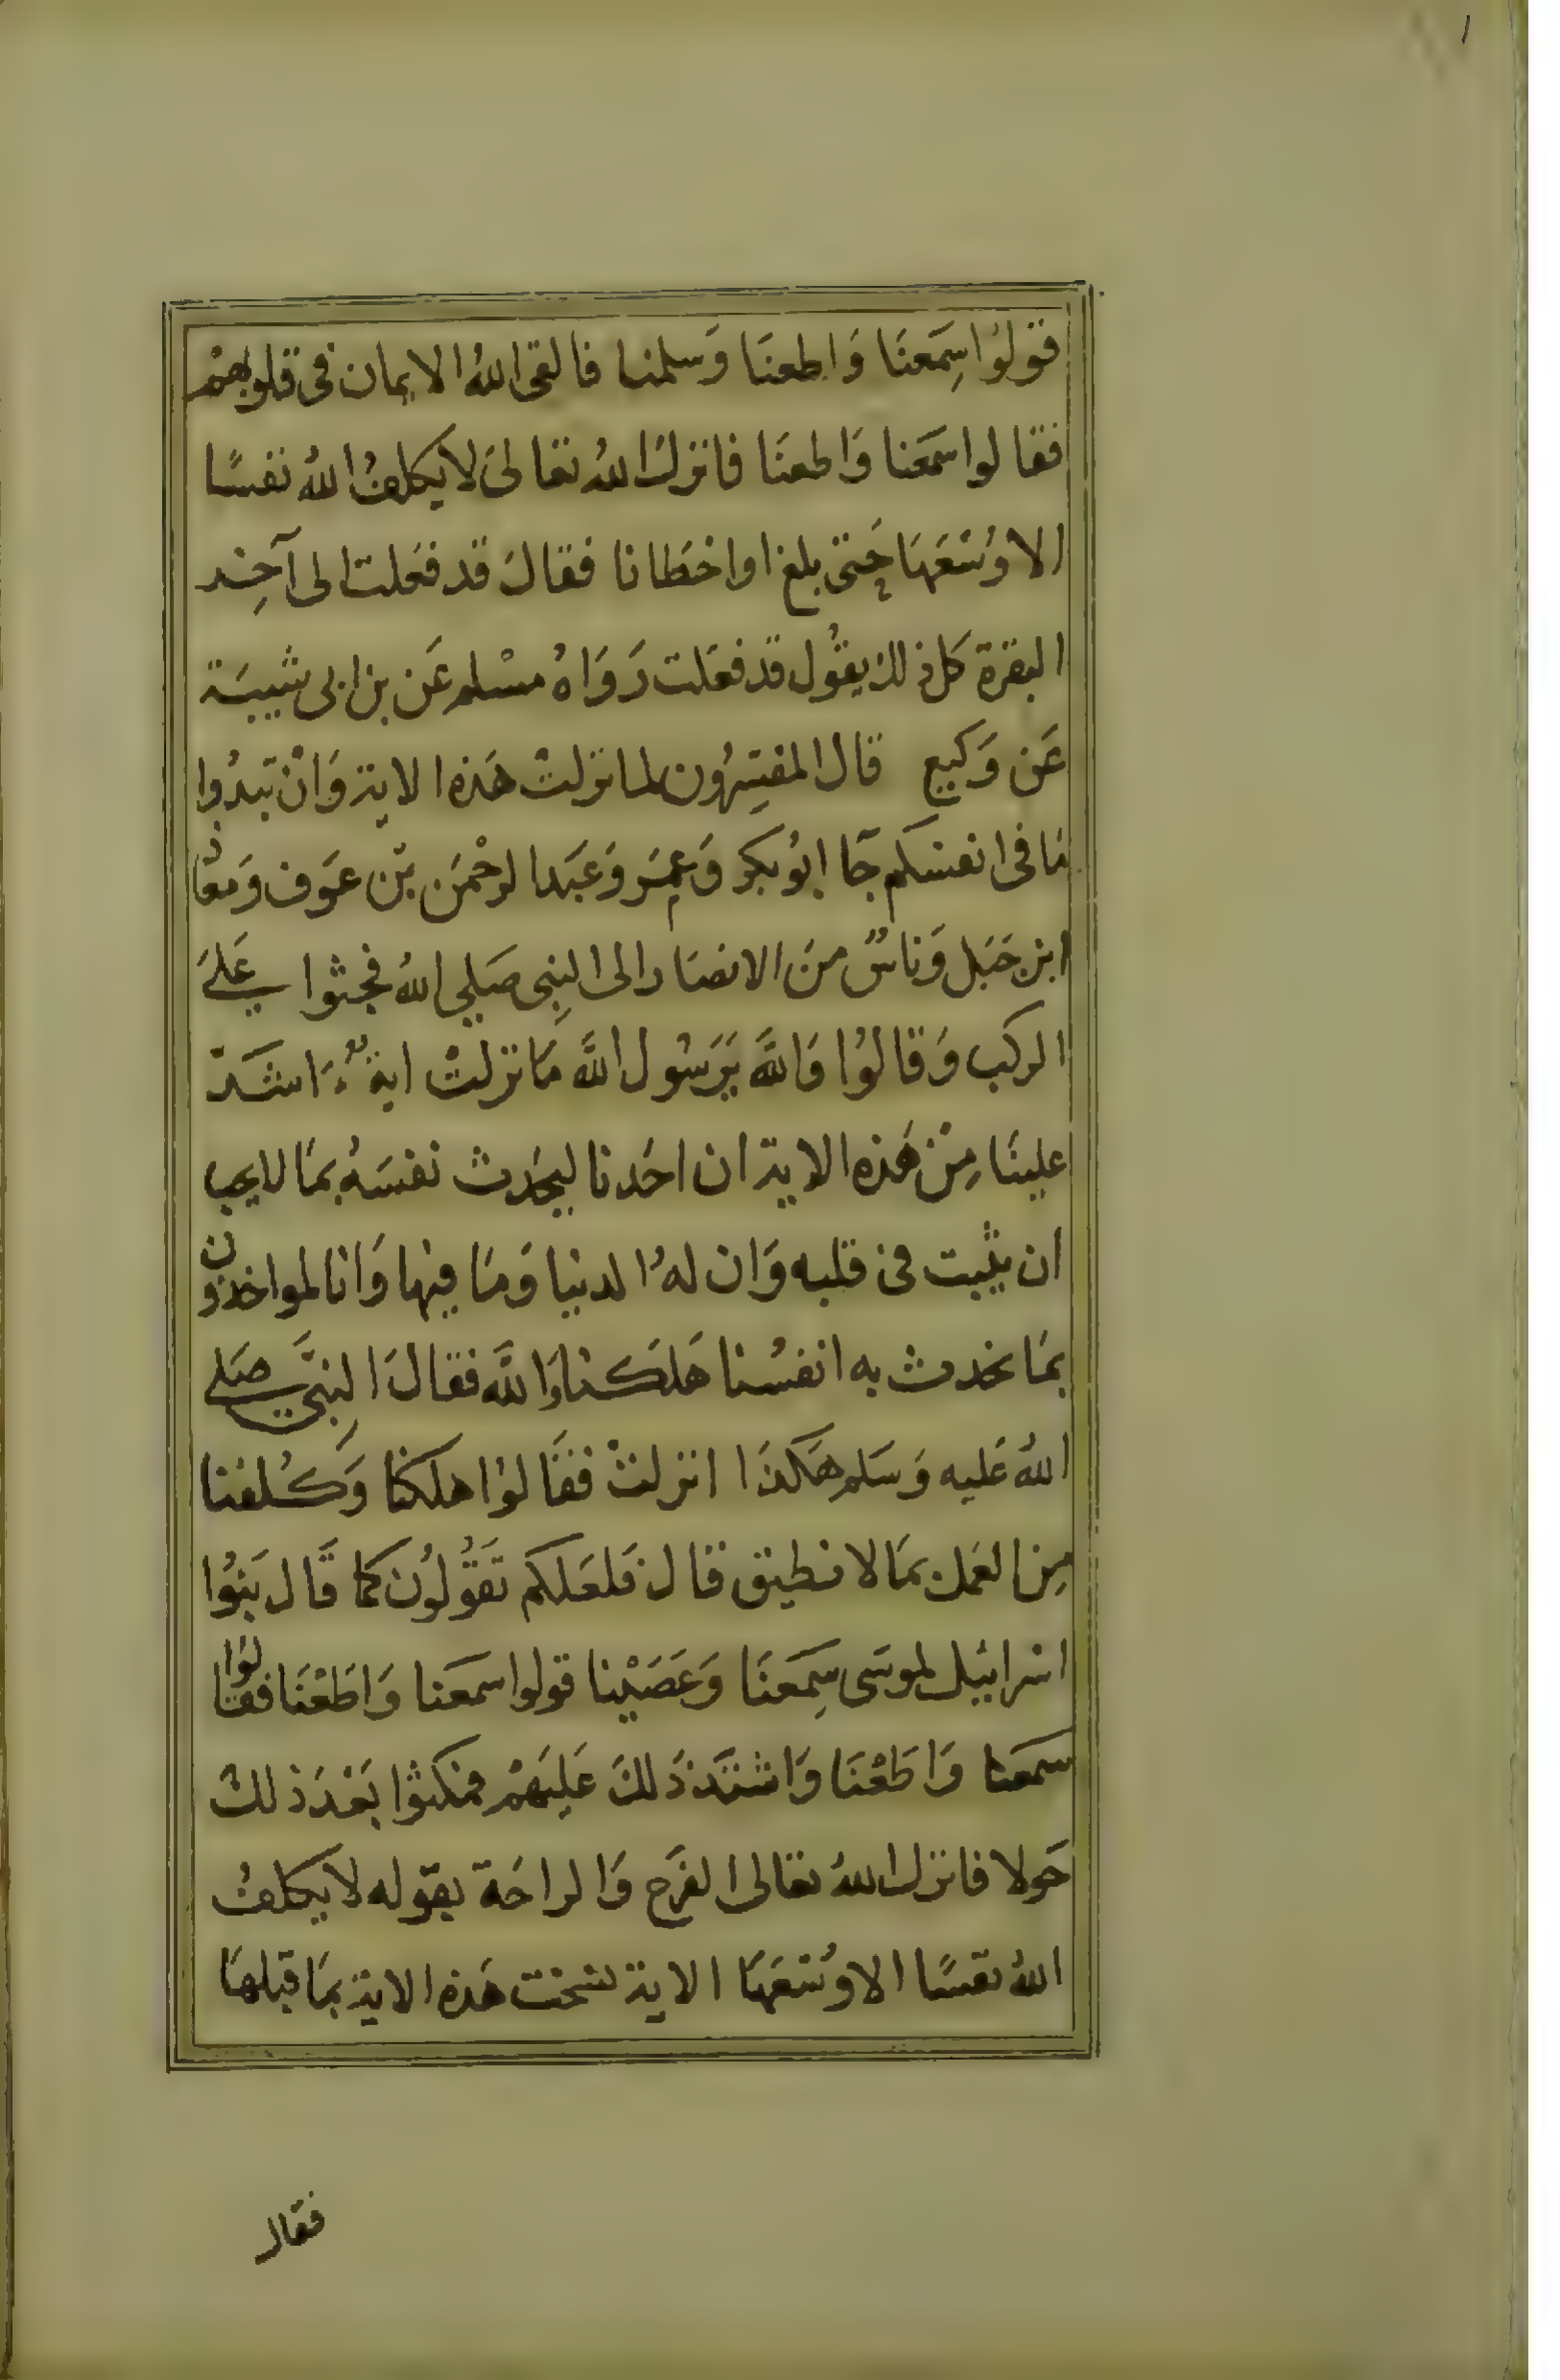 ١
قولوا سِمَعنَا وَاطعنَا وَسلمنا فالقى اللهُ الايمان فى قلوبهمْ
فقالوا سمَعنا وَاطعنَا فانزلَ اللهُ تعالىَ لا يكلفُ اللهُ نفسًا
الا وُسْعَهَا حَتى بلغ او اخطَانا فقالَ قد فعَلت الى آخِر
البقرة كل ذلك يقُول قد فعَلت رَوَاهُ مسْلم عَن بن ابى شيبَة
عَن وَكيع قال المفسِرُون لما نزلتْ هَذه الاية وَانْ تبدُوا
مَا فى انفسكم جَآ ابُو بكر وَعمَر وَعَبد الرحْمَن بْن عَوف وَمعَاذ
ابن جَبَل وَناسٌ منَ الانصَار الى النبِى صَلي اللهُ فجثوا عَلےَ
الركب وَقالوُا وَاللَّه يَرَسُول اللَّه مَا نزلتْ ايةٌ ءَاشَدّ
علينَا مِنْ هَذه الاية ان احَدنا ليحَدث نفسَهُ بمَا لا يحب
ان يثبت فى قلبه وَان لهُ الدنيا وَمَا فيها وَانا لمواخذون
بمَا نحدث به انفسُنا هَلَكنا وَاللَّه فقالَ النبِىَّ صَلے
اللهُ عَليه وَسَلم هَكذَا انزلتْ فقَالوْا هلكنا وَكُلفنا
مِن العَمل بمَا لا نطيق قال فلعَلكم تَقُولُونَ كما قَال بَنُوا
اسرايَيل لموسَى سِمَعنَا وَعَصَيْنا قولوا سمَعنا وَاطَعْنَا فقالوُا
سمَعنا وَاطَعْنَا وَاشتَد ذَلكَ عَلِيَهمْ فمكثوْا بَعْدَ ذلكْ
حَولا فانزل اللهُ تعالى الفَرَج وَالراحَة بقوله لا يكلفُ
اللهُ نفسًا الا وُسْعَهَا الاية نسخت هَذه الاية بمَا قبلهَا
فقال